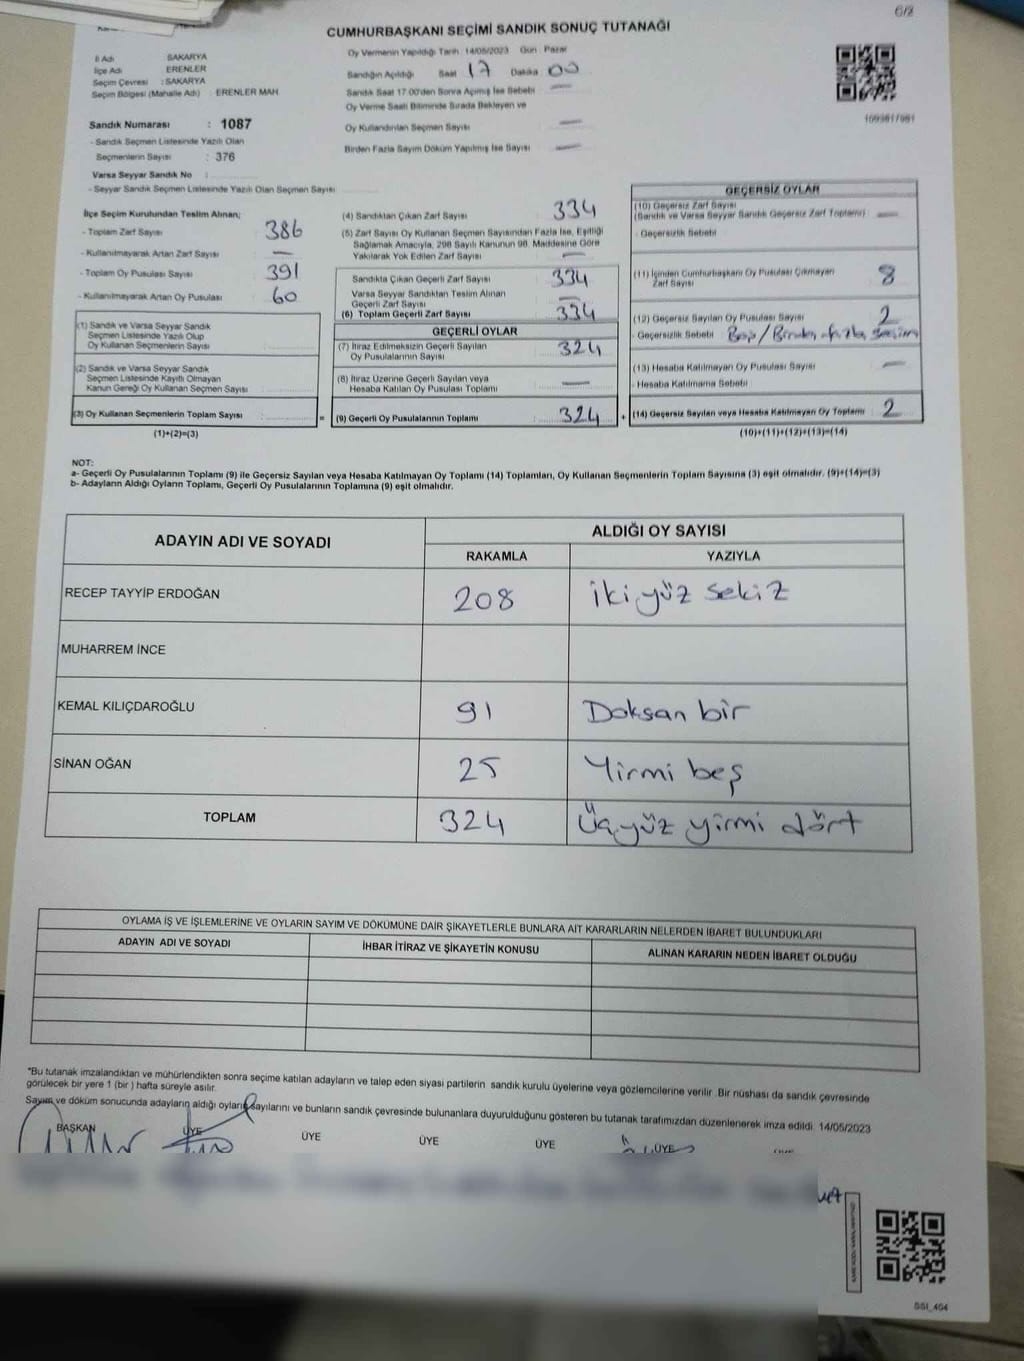 6/2
CUMHURBAŞKANI SEÇİMİ SANDIK SONUÇ TUTANAĞI
İl Adı SAKARYA
İlçe Adı ERENLER
Seçim Çevresi : SAKARYA
Seçim Bölgesi (Mahalle Adı) : ERENLER MAH
Sandık Numarası : 1087
- Sandık Seçmen Listesinde Yazılı Olan
Seçmenlerin Sayısı : 376
Varsa Seyyar Sandık No :
- Seyyar Sandık Seçmen Listesinde Yazılı Olan Seçmen Sayısı
Oy Vermenin Yapıldığı Tarih : 14/05/2023 Gün : Pazar
Sandığın Açıldığı Saat 17 Dakika 00
Sandık Saat 17.00'den Sonra Açılmış İse Sebebi —
Oy Verme Saati Bitiminde Sırada Bekleyen ve
Oy Kullandırılan Seçmen Sayısı —
Birden Fazla Sayım Döküm Yapılmış İse Sayısı —
İlçe Seçim Kurulundan Teslim Alınan;
- Toplam Zarf Sayısı 386
- Kullanılmayarak Artan Zarf Sayısı —
- Toplam Oy Pusulası Sayısı 391
- Kullanılmayarak Artan Oy Pusulası 60
(1) Sandık ve Varsa Seyyar Sandık
Seçmen Listesinde Yazılı Olup
Oy Kullanan Seçmenlerin Sayısı
(2) Sandık ve Varsa Seyyar Sandık
Seçmen Listesinde Kayıtlı Olmayan
Kanun Gereği Oy Kullanan Seçmen Sayısı
(3) Oy Kullanan Seçmenlerin Toplam Sayısı : =
(1)+(2)=(3)
(4) Sandıktan Çıkan Zarf Sayısı 334
(5) Zarf Sayısı Oy Kullanan Seçmen Sayısından Fazla İse, Eşitliği
Sağlamak Amacıyla, 298 Sayılı Kanunun 98. Maddesine Göre
Yakılarak Yok Edilen Zarf Sayısı —
Sandıkta Çıkan Geçerli Zarf Sayısı 334
Varsa Seyyar Sandıktan Teslim Alınan
Geçerli Zarf Sayısı —
(6) Toplam Geçerli Zarf Sayısı 334
GEÇERLİ OYLAR
(7) İtiraz Edilmeksizin Geçerli Sayılan
Oy Pusulalarının Sayısı 324
(8) İtiraz Üzerine Geçerli Sayılan veya
Hesaba Katılan Oy Pusulası Sayısı —
(9) Geçerli Oy Pusulalarının Toplamı 324 +
GEÇERSİZ OYLAR
(10) Geçersiz Zarf Sayısı
(Sandık ve Varsa Seyyar Sandık Geçersiz Zarf Toplamı) —
- Geçersizlik Sebebi
(11) İçinden Cumhurbaşkanı Oy Pusulası Çıkmayan
Zarf Sayısı 8
(12) Geçersiz Sayılan Oy Pusulası Sayısı 2
- Geçersizlik Sebebi
(13) Hesaba Katılmayan Oy Pusulası Sayısı —
- Hesaba Katılmama Sebebi
(14) Geçersiz Sayılan veya Hesaba Katılmayan Oy Toplamı 2
(10)+(11)+(12)+(13)=(14)
NOT:
a- Geçerli Oy Pusulalarının Toplamı (9) ile Geçersiz Sayılan veya Hesaba Katılmayan Oy Toplamı (14) Toplamları, Oy Kullanan Seçmenlerin Toplam Sayısına (3) eşit olmalıdır. (9)+(14)=(3)
b- Adayların Aldığı Oyların Toplamı, Geçerli Oy Pusulalarının Toplamına (9) eşit olmalıdır.
ADAYIN ADI VE SOYADI ALDIĞI OY SAYISI
RAKAMLA YAZIYLA
RECEP TAYYİP ERDOĞAN 208 iki yüz sekiz
MUHARREM İNCE
KEMAL KILIÇDAROĞLU 91 Doksan bir
SİNAN OĞAN 25 Yirmi beş
TOPLAM 324 Üçyüz yirmi dört
OYLAMA İŞ VE İŞLEMLERİNE VE OYLARIN SAYIM VE DÖKÜMÜNE DAİR ŞİKAYETLERLE BUNLARA AİT KARARLARIN NELERDEN İBARET BULUNDUKLARI
ADAYIN ADI VE SOYADI İHBAR İTİRAZ VE ŞİKAYETİN KONUSU ALINAN KARARIN NEDEN İBARET OLDUĞU
*Bu tutanak imzalandıktan ve mühürlendikten sonra seçime katılan adayların ve talep eden siyasi partilerin sandık kurulu üyelerine veya gözlemcilerine verilir. Bir nüshası da sandık çevresinde
görülecek bir yere 1 (bir ) hafta süreyle asılır.
Sayım ve döküm sonucunda adayların aldığı oyların sayılarını ve bunların sandık çevresinde bulunanlara duyurulduğunu gösteren bu tutanak tarafımızdan düzenlenerek imza edildi. 14/05/2023
BAŞKAN ÜYE ÜYE ÜYE ÜYE ÜYE
SSI_404